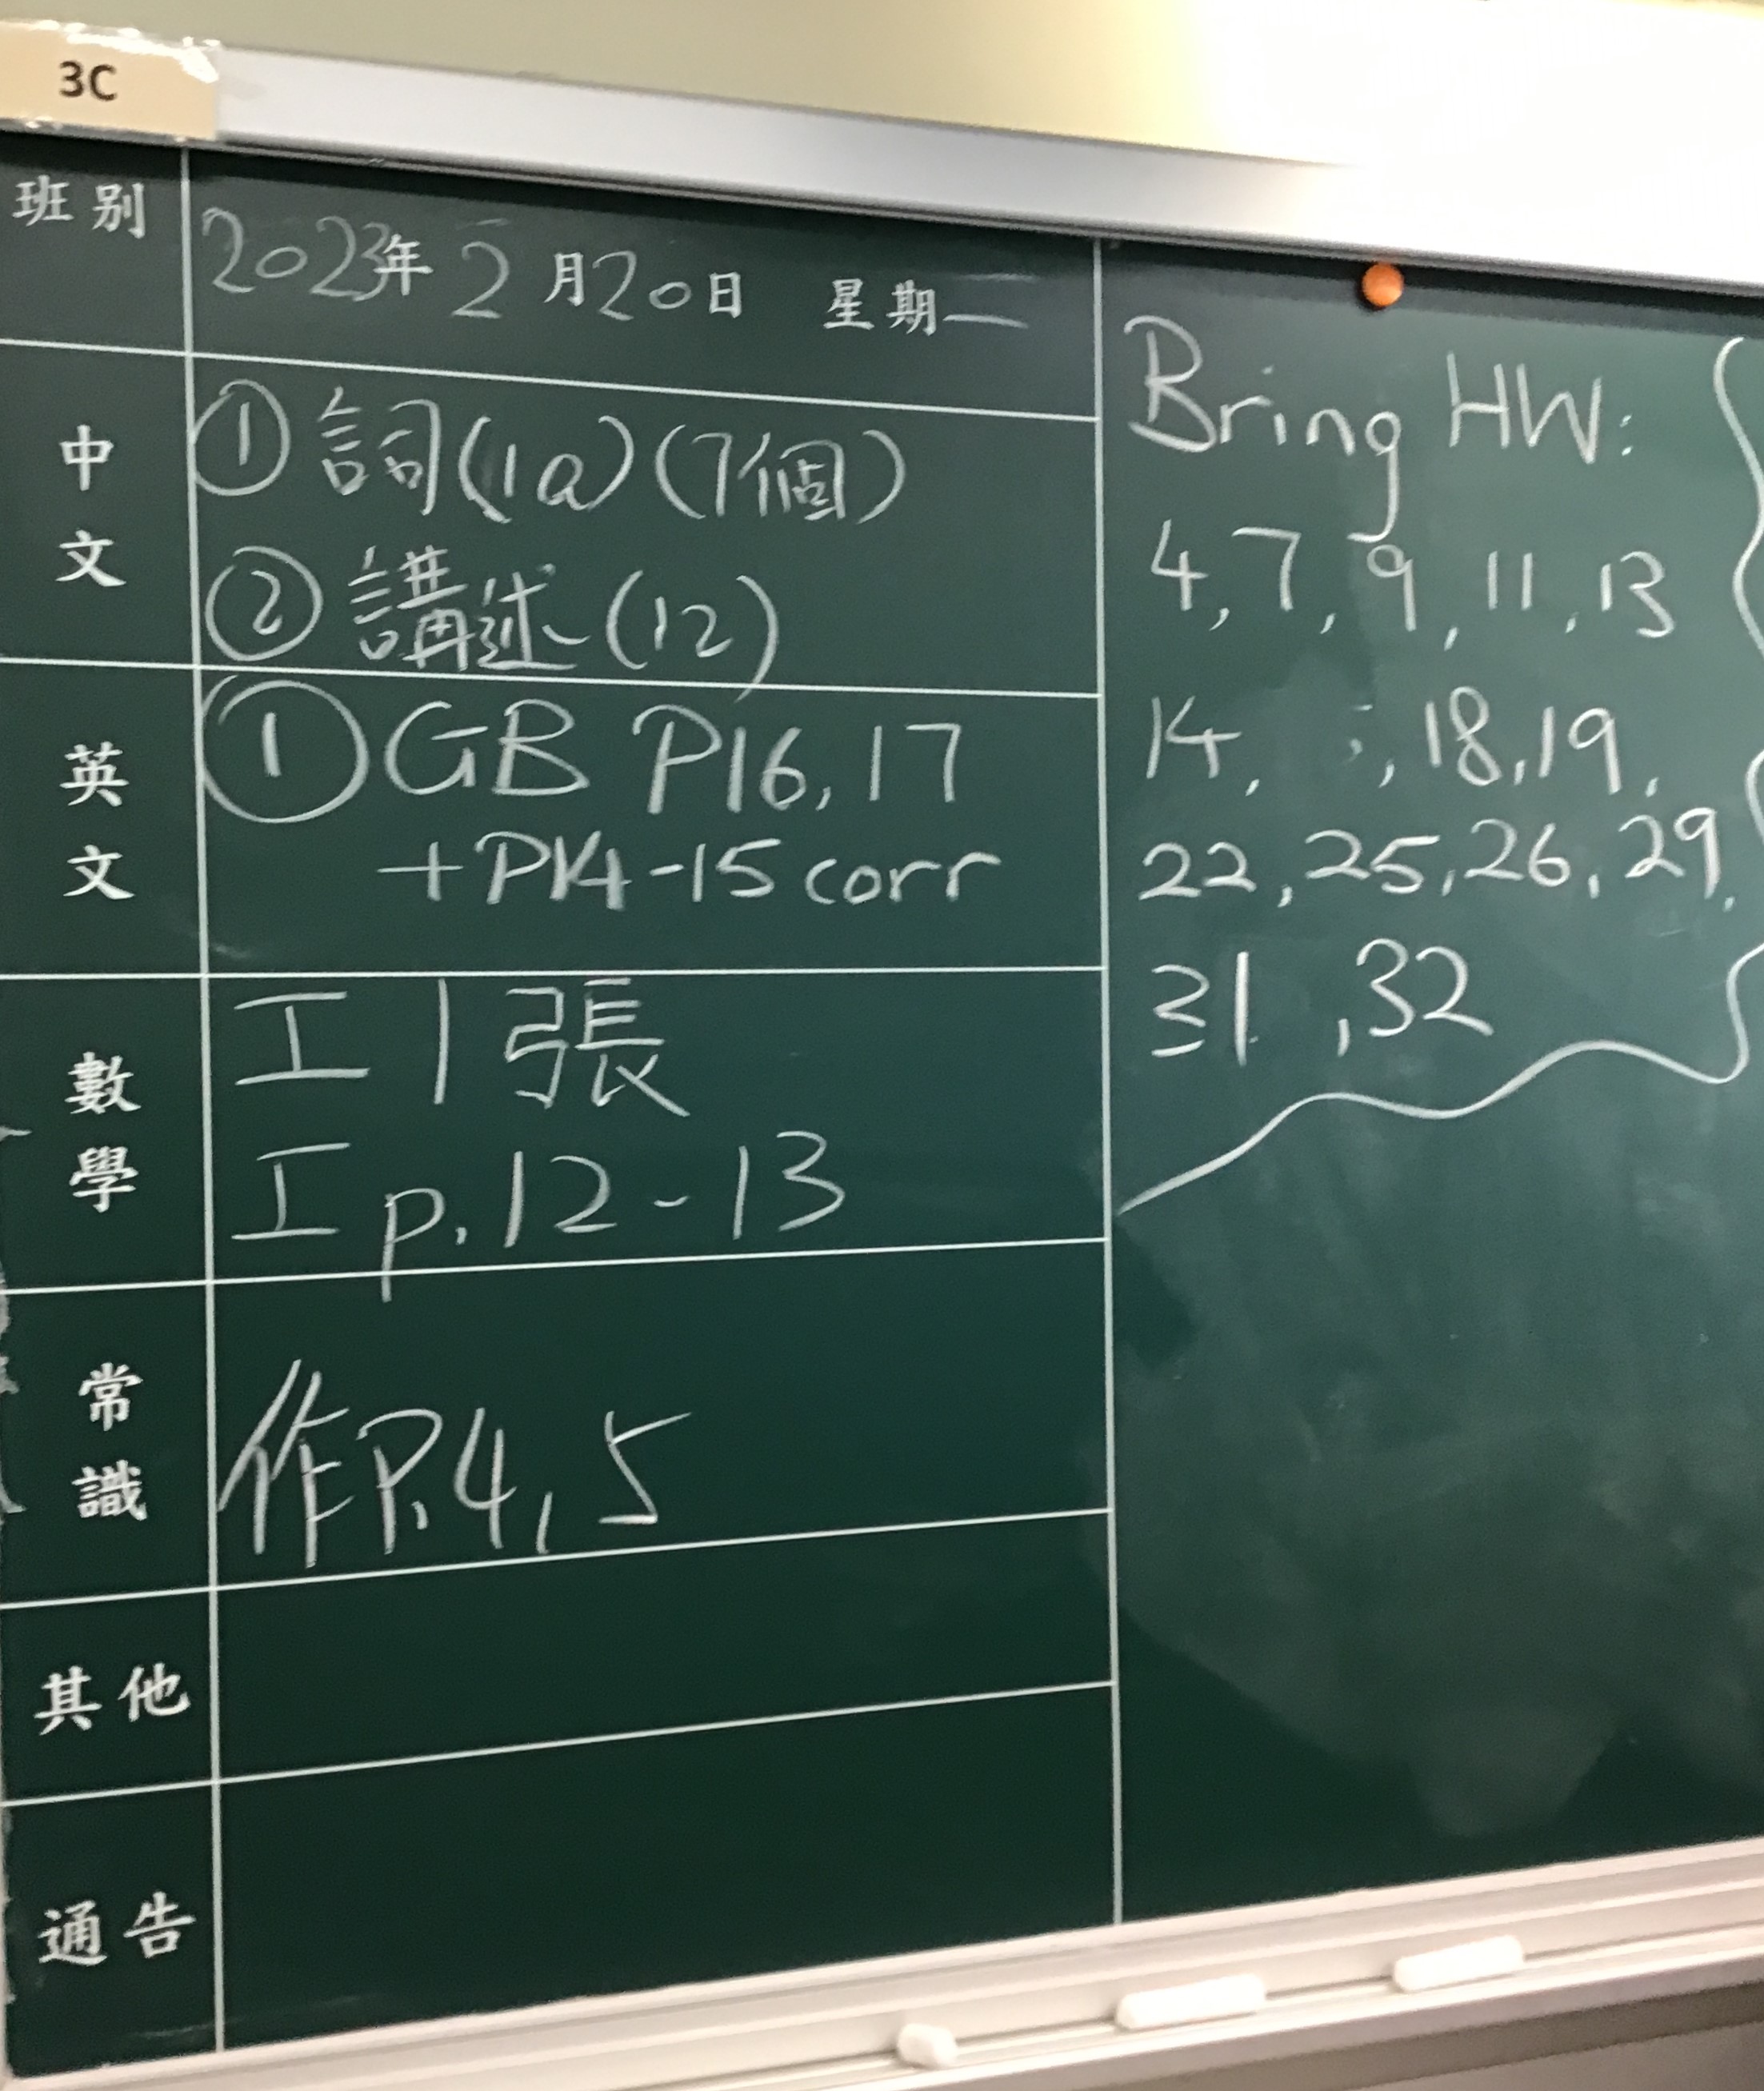 3C
班別
2023年2月20日 星期一
中文
① 詞(1a)(7個)
② 講述(12)
英文
① GB P16,17
+P14-15 corr
數學
工1張
工p.12-13
常識
作P.4,5
其他
通告
Bring HW:
4,7,9,11,13
14, ,18,19,
22,25,26,29,
31,32